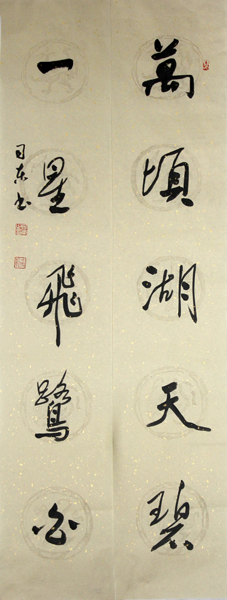 萬頃湖天碧
一星飛鷺白
司东书